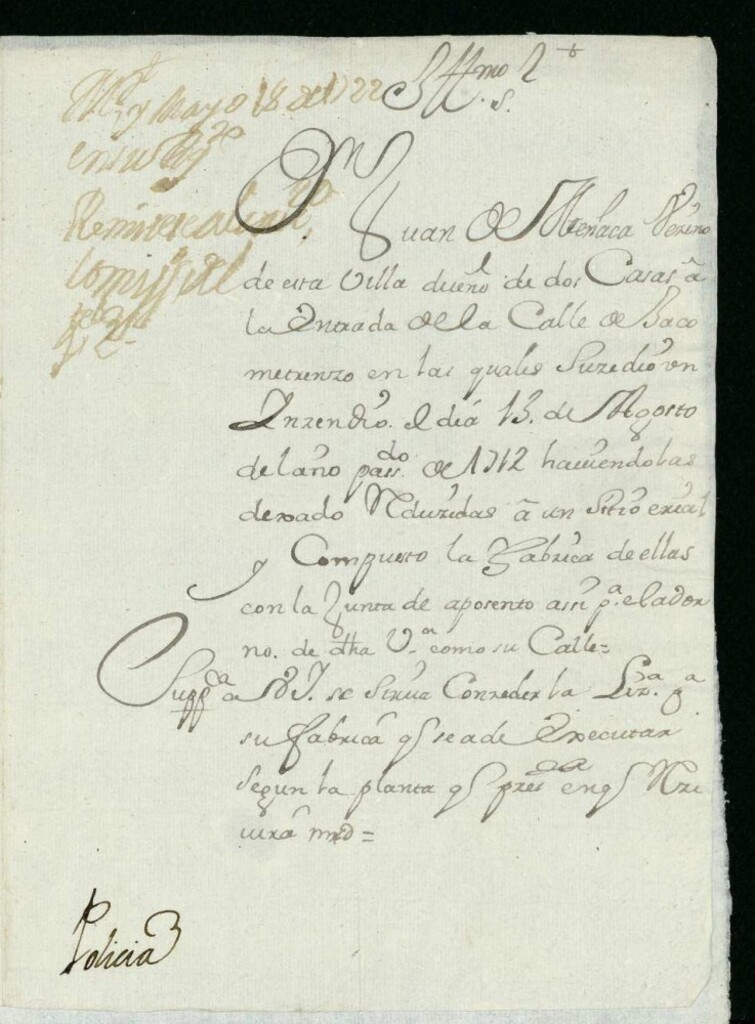 Md. y Mayo 18 de 1722
en su Ayto
Remitese al
Comissro de
Illmo Sr
s.
Juan de Meñaca Vezino
de esta Villa dueño de dos Casas â
la Entrada de la Calle de Baco
metrenzo en las quales Suzedio vn
Inzendio. el dia 13. de Agosto
del año passdo de 1712 haviendolas
dexado Reduzidas â un Sitio erial
y Compuesto la Fabrica de ellas
con la Junta de aposento assi pa. el ador
no. de dha Va. como su Calle=
Suppca a V.I. se Sirva Conzeder la Liza. pa
su fabrica q se a de Executar
segun la planta q presta en q Rzi
uira mrd=
Policia